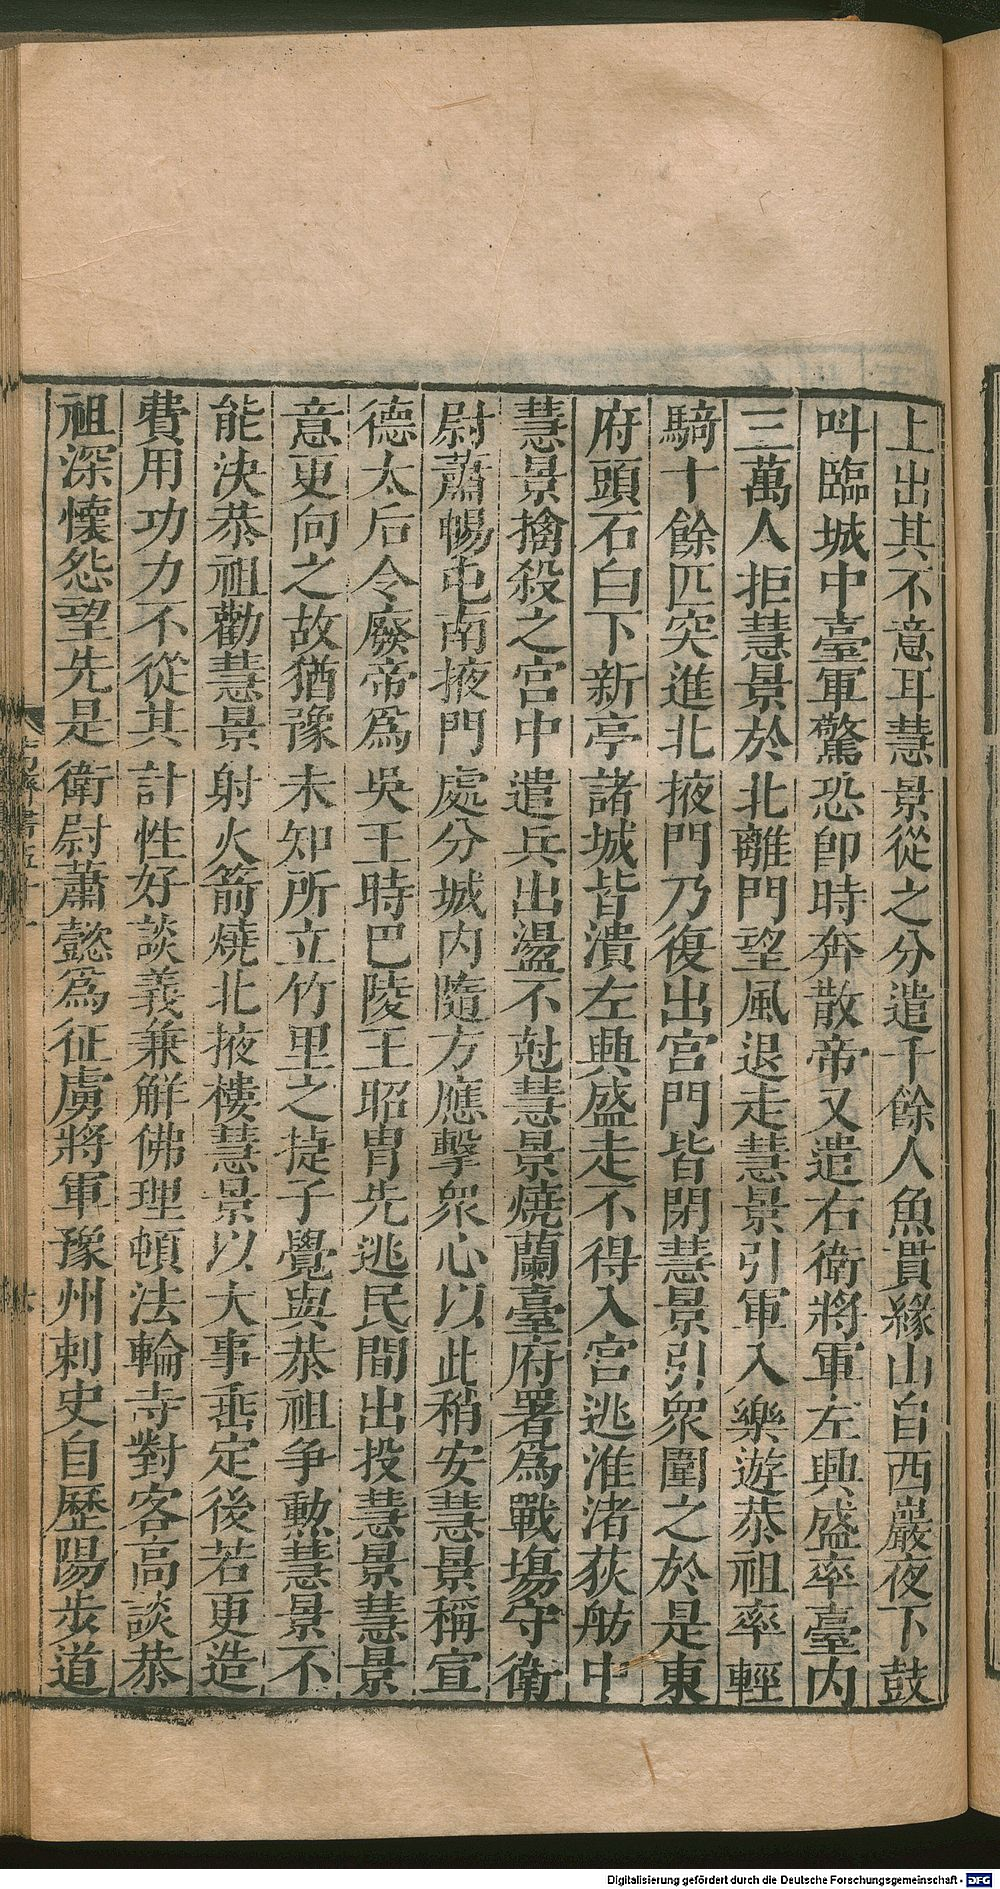 上出其不意耳慧景從之分遣千餘人魚貫緣山自西巖夜下鼓
叫臨城中臺軍驚恐卽時奔散帝又遣右衛將軍左興盛率臺內
三萬人拒慧景於北離門望風退走慧景引軍入樂遊恭祖率輕
騎十餘匹突進北掖門乃復出宮門皆閉慧景引眾圍之於是東
府頭石白下新亭諸城皆潰左興盛走不得入宮逃淮渚荻舫中
慧景擒殺之宮中遣兵出盪不尅慧景燒蘭臺府署爲戰塲守衛
尉蕭暢屯南掖門處分城內隨方應擊眾心以此稍安慧景稱宣
德太后令廢帝爲吳王時巴陵王昭胄先逃民間出投慧景慧景
意更向之故猶豫未知所立竹里之捷子覺與恭祖爭勲慧景不
能決恭祖勸慧景射火箭燒北掖樓慧景以大事垂定後若更造
費用功力不從其計性好談義兼解佛理頓法輪寺對客高談恭
祖深懷怨望先是衛尉蕭懿爲征虜將軍豫州刺史自歷陽步道
Digitalisierung gefördert durch die Deutsche Forschungsgemeinschaft - DFG